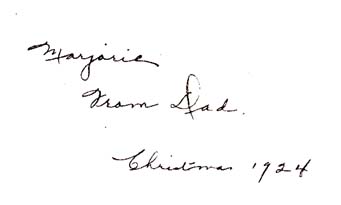 Marjorie
From Dad.
Christmas 1924